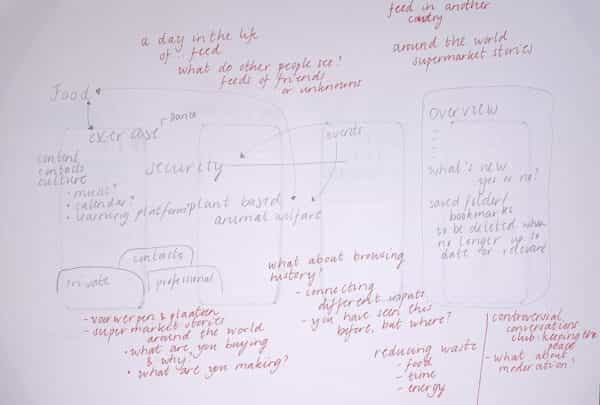 feed in another
country
a day in the life
of .. feed
what do other people see?
feeds of friends
or unknowns
around the world
supermarket stories
Food
Dance
exercise
events
security
content
contacts
culture
- music?
- calendar?
- learning platform?
plant based
animal welfare
overview
what's new
yes or no?
saved folder/
bookmarks
to be deleted when
no longer up to
date or relevant
contacts
private
professional
- voorwerpen & plaatsen
- supermarket stories
around the world
- what are you buying
& why?
- what are you making?
what about browsing
history?
- connecting
different inputs
- you have seen this
before, but where?
reducing waste
- food
- time
- energy
controversial
conversations
club: keeping the
peace
- what about
moderation?